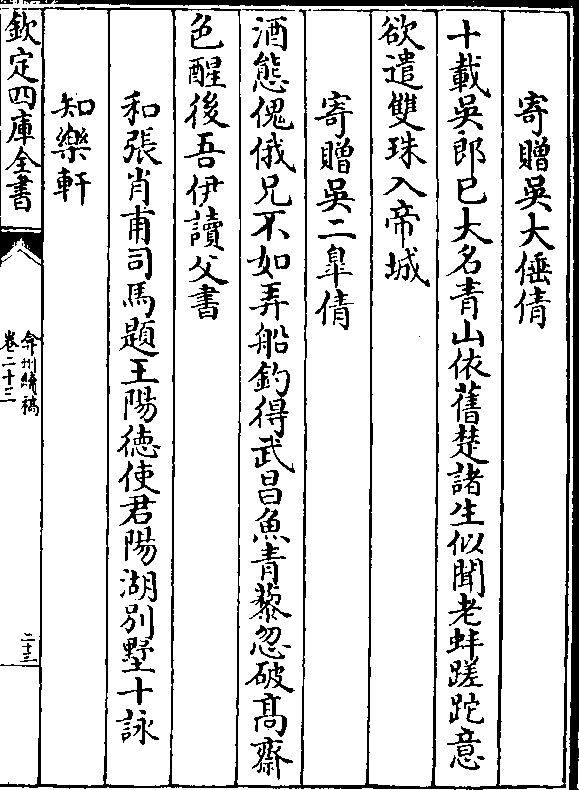 寄贈吳大倕倩
十載吳郎已大名青山依舊楚諸生似聞老蚌蹉跎意
欲遣雙珠入帝城
寄贈吳二臯倩
酒態傀俄兄不如弄船釣得武昌魚青藜忽破髙齋
色醒後吾伊讀父書
和張肖甫司馬題王陽德使君陽湖別墅十詠
知樂軒
欽定四庫全書
弇州續稿
卷二十三
二十三